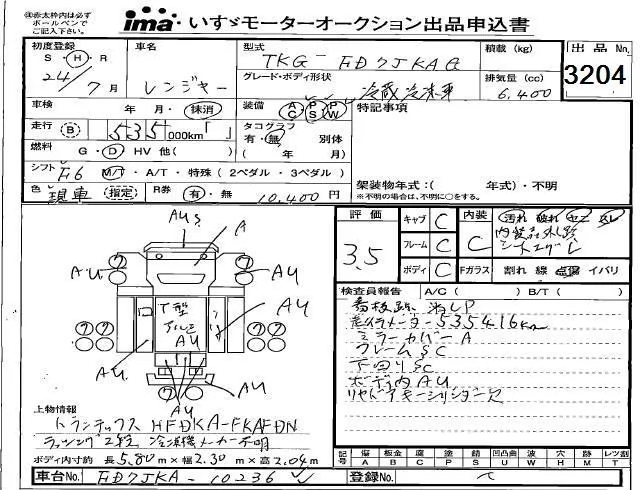 ㊟赤太枠内は必ず
ボールペンで
ご記入下さい
ima いすゞモーターオークション出品申込書
初度登録 S・H・R 24/7月
車名 レンジャー
型式 TKG-FD7JKAG
グレード・ボディ形状 冷蔵冷凍車
積載 (kg)
排気量 (cc) 6,400
出品No. 3204
車検 年 月・抹消
装備 AC PS PW
特記事項
走行 B 535,000km「 」
タコグラフ 有・無 別体 ( 年 月)
燃料 G・D HV 他( )
シフト F6 M/T・A/T・特殊 (2ペダル・3ペダル)
色 現車 指定 R券 有・無 10,400円
架装物年式:( 年式)・不明
※不明の場合は、不明に○をする。
評価 3.5
キャブ C
フレーム C
ボディ C
内装 C 汚れ 破れ
Fガラス 割れ 線 点傷 イバリ
検査員報告 A/C( ) B/T( )
看板跡 消しP
走行メーター535416km
ミラーカバーA
フレームSC
下回りSC
ボディ内AU
AU
A
AU
AU
T型
アルミ
AU
AU
AU
AU
AU
上物情報
トランテックス HFDKA-FKAFDN
ラッシング2段 冷凍機メーカー不明
ボディ内寸約 長5.80m×幅2.30m×高2.04m
記号 傷A 板金B 腐食C 塗P サビS 凹凸曲U 凹W 穴H 跡M レツ割T
車台No. FD7JKA-10236
登録No.